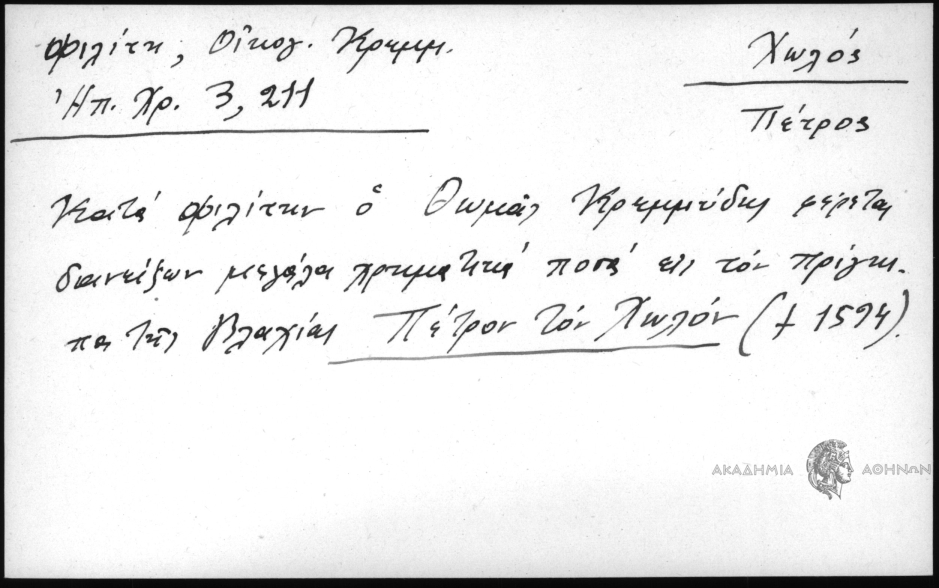 Φιλίτη, Οἰκογ. Κρεμμ.
Ἠπ. Χρ. 3, 211
Χωλός
Πέτρος
Κατά Φιλίτην ὁ Θωμᾶς Κρεμμύδης φέρεται
δανείζων μεγάλα χρηματικά ποσά εἰς τόν πρίγκι-
πα τῆς Βλαχίας Πέτρον τόν Χωλόν († 1594).
ΑΚΑΔΗΜΙΑ ΑΘΗΝΩΝ